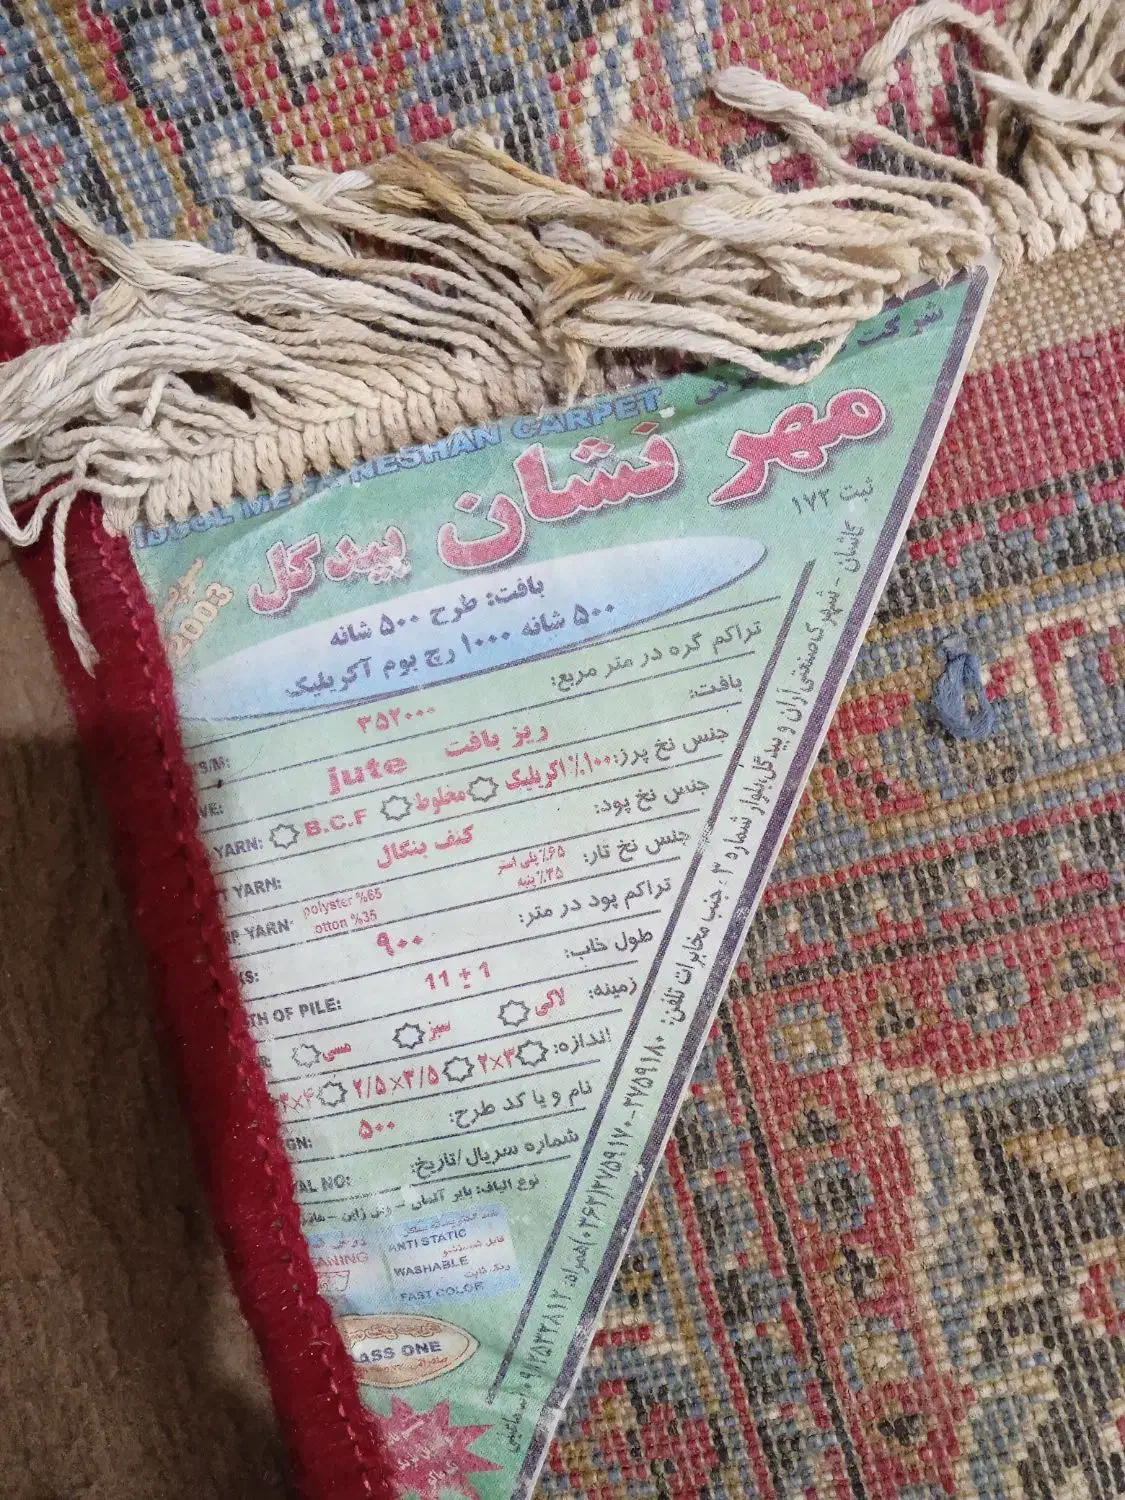 شرکت
NESHAN CARPET
مهر نشان بیدگل
ثبت ۱۷۲
2003
بافت: طرح ۵۰۰ شانه
۵۰۰ شانه ۱۰۰۰ رج بوم آکریلیک
تراکم گره در متر مربع:
۳۵۲۰۰۰
S/M:
بافت:
ریز بافت
jute
VE:
جنس نخ پرز: ۱۰۰٪ اکریلیک مخلوط B.C.F
YARN:
جنس نخ پود:
کنف بنگال
T YARN:
جنس نخ تار:
۶۵٪ پلی استر
۳۵٪ پنبه
polyster %65
otton %35
RP YARN:
تراکم پود در متر:
۹۰۰
KS:
طول خاب:
11 ± 1
TH OF PILE:
زمینه: لاکی سبز مسی
اندازه: ۲×۳ ۲/۵×۳/۵ ۳×۴
نام و یا کد طرح:
۵۰۰
GN:
شماره سریال/تاریخ:
AL NO:
نوع الیاف: بایر آلمان - ژاپن -
ANTI STATIC
قابل شستشو
WASHABLE
رنگ ثابت
FAST COLOR
ANING
ASS ONE
کاشان - شهرک صنعتی آران و بیدگل بلوار شماره ۳ جنب مخابرات تلفن: ۲۷۵۹۱۸۰-۰۳۶۲/۲۷۵۹۱۷۰ همراه: